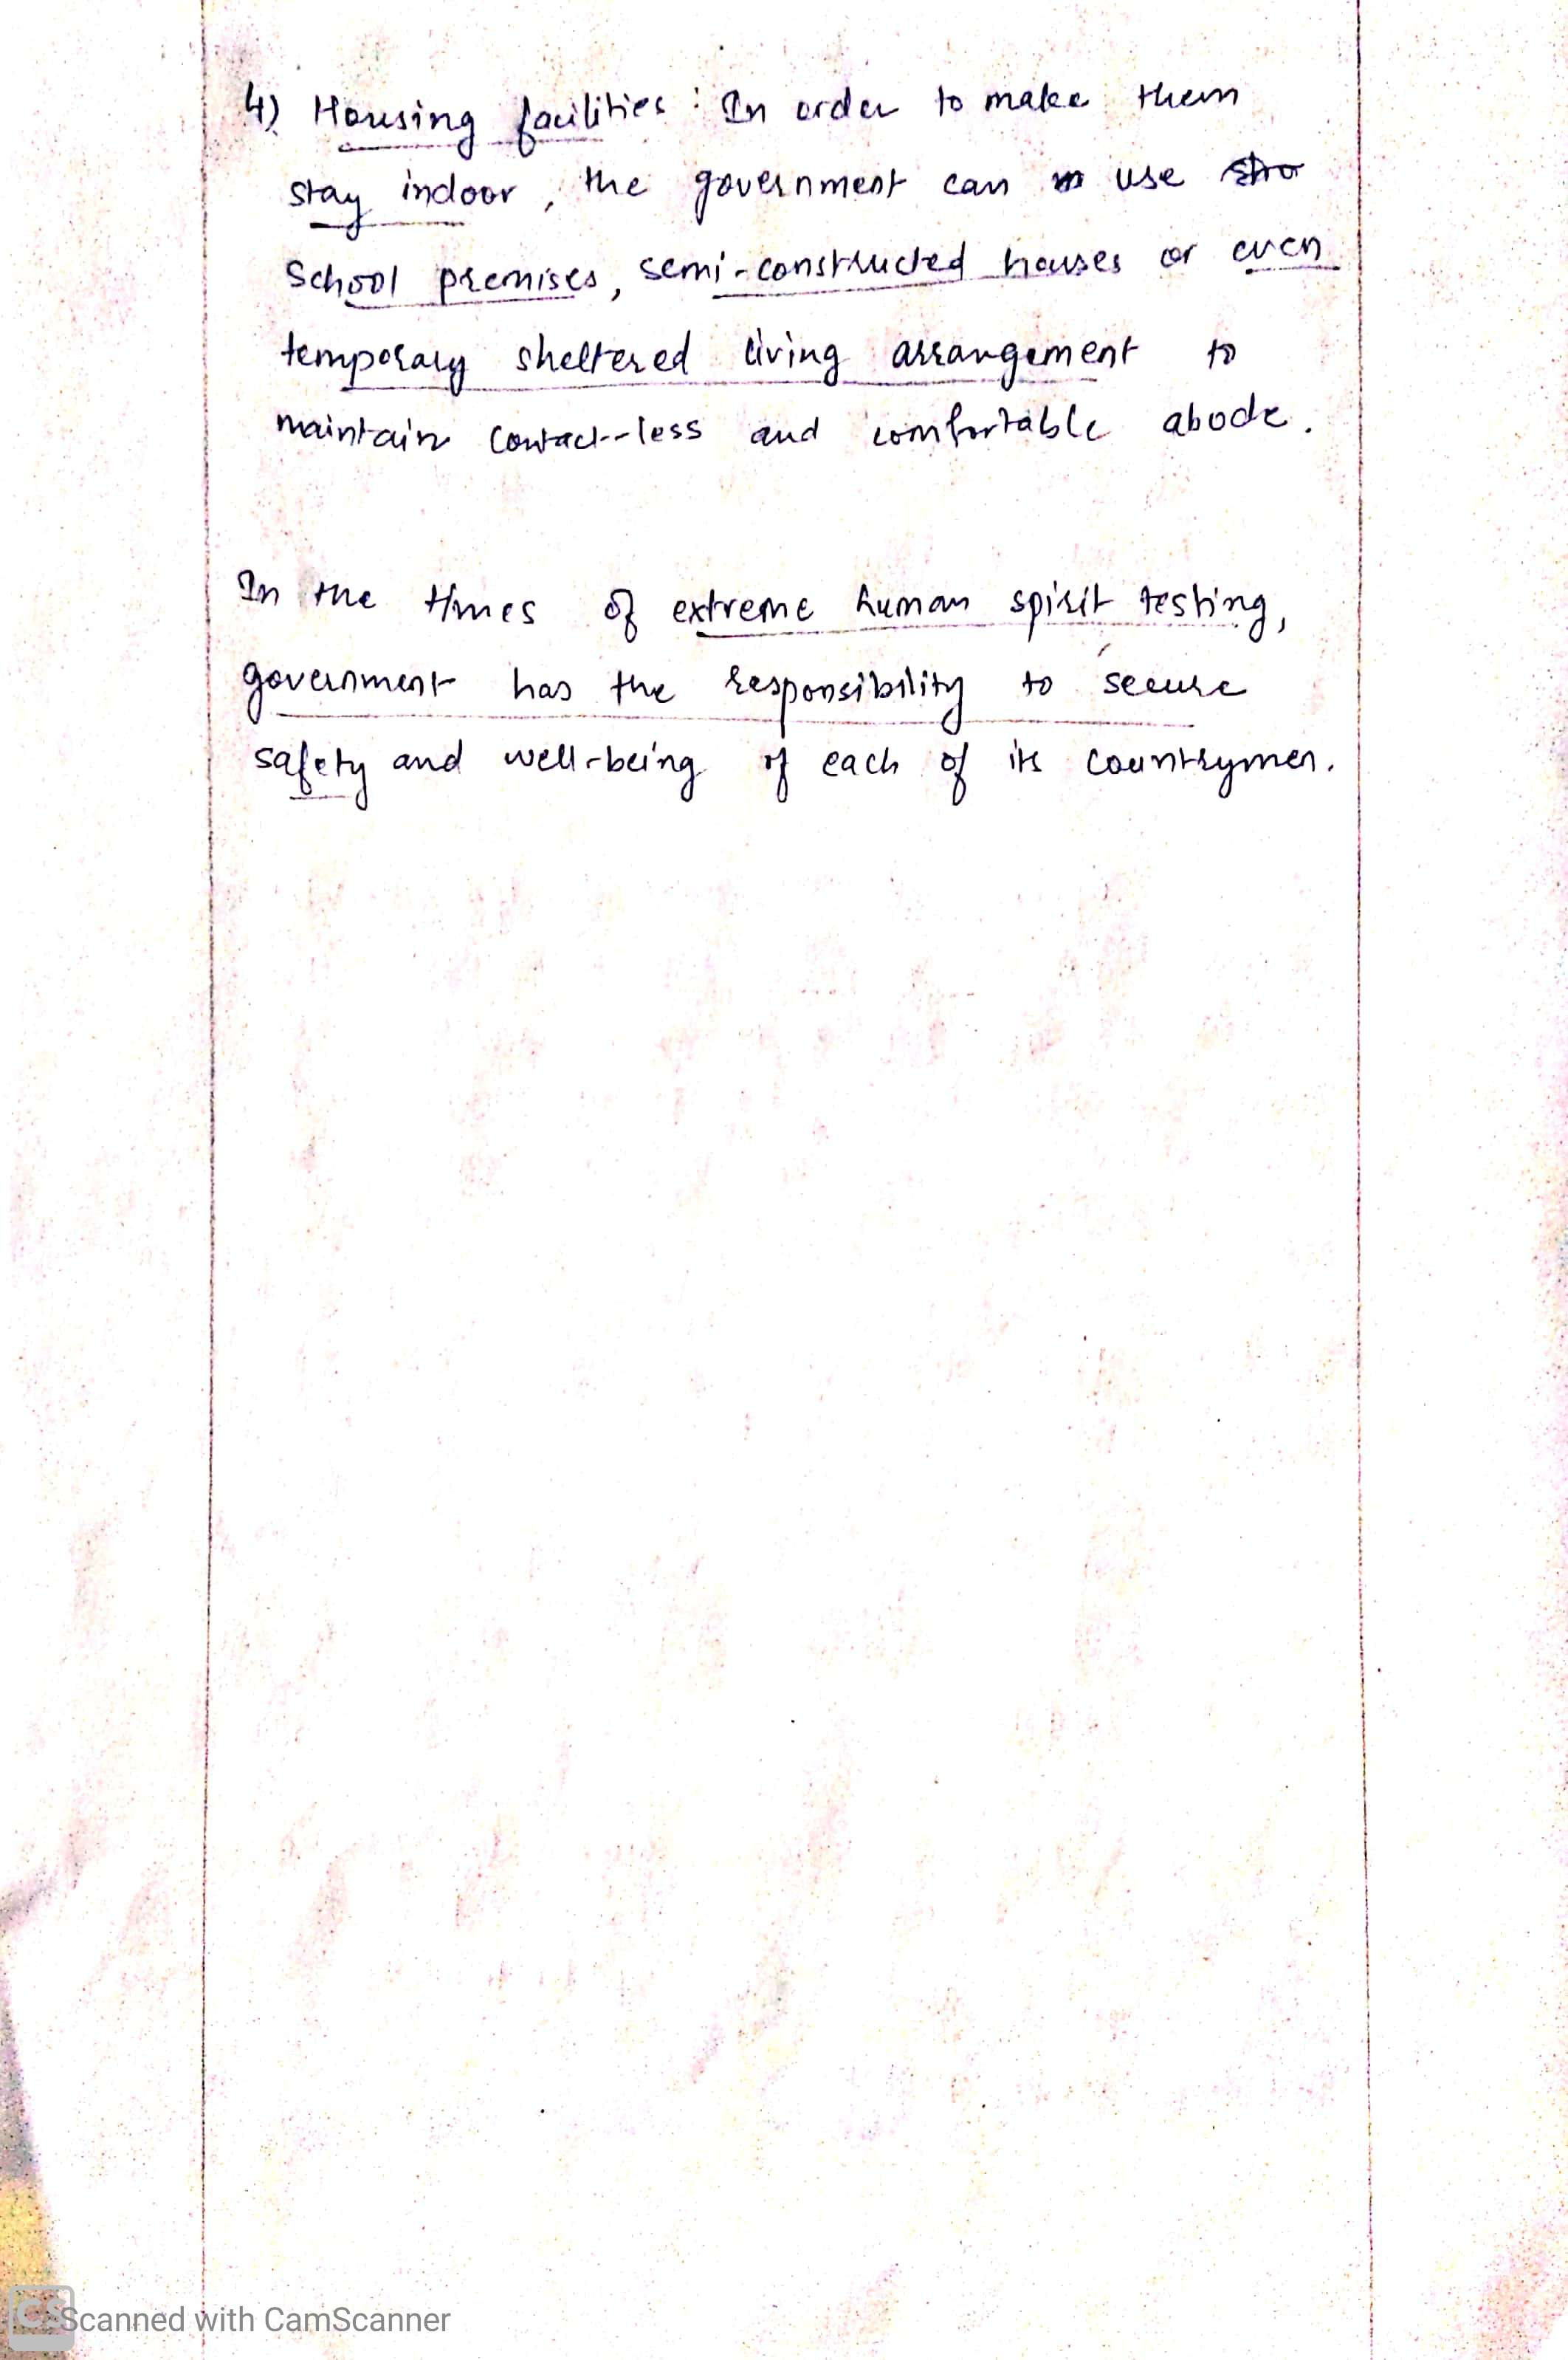 4) Housing facilities : In order to make them
stay indoor, the government can use
School premises, semi-constructed houses or even
temporary sheltered living arrangement to
maintain contact-less and comfortable abode.
In the times of extreme human spirit testing,
government has the responsibility to secure
safety and well-being of each of its countrymen.
CS Scanned with CamScanner